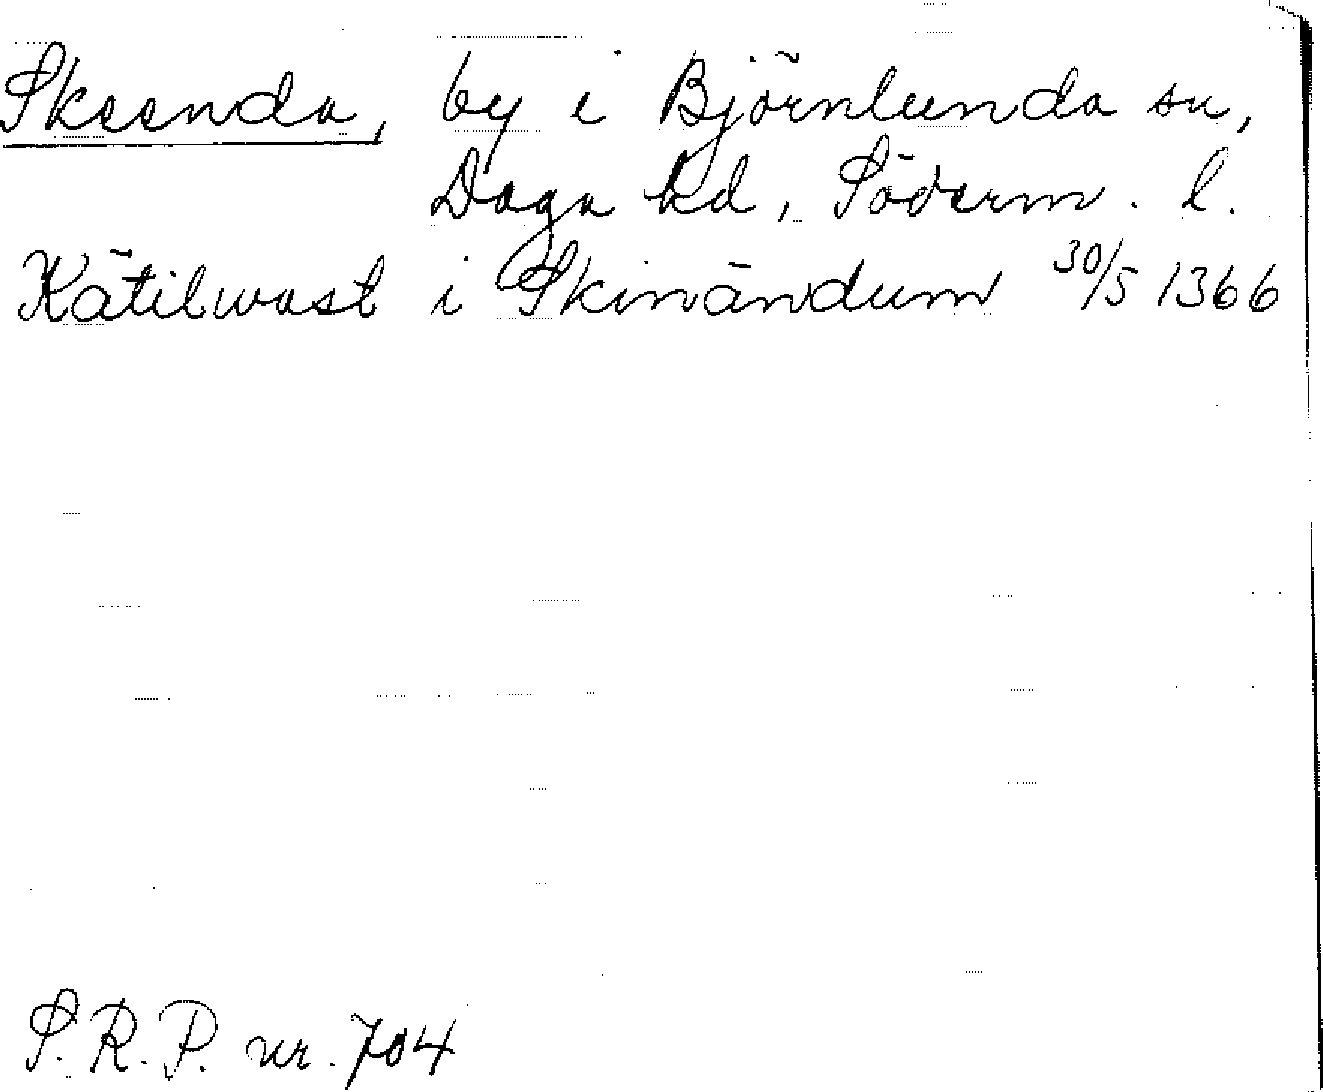 Skeenda, by i Björnlunda sn,
Daga hd, Söderm. l.
Kätilwast i Skinändum 30/5 1366
S.R.P. nr. 704